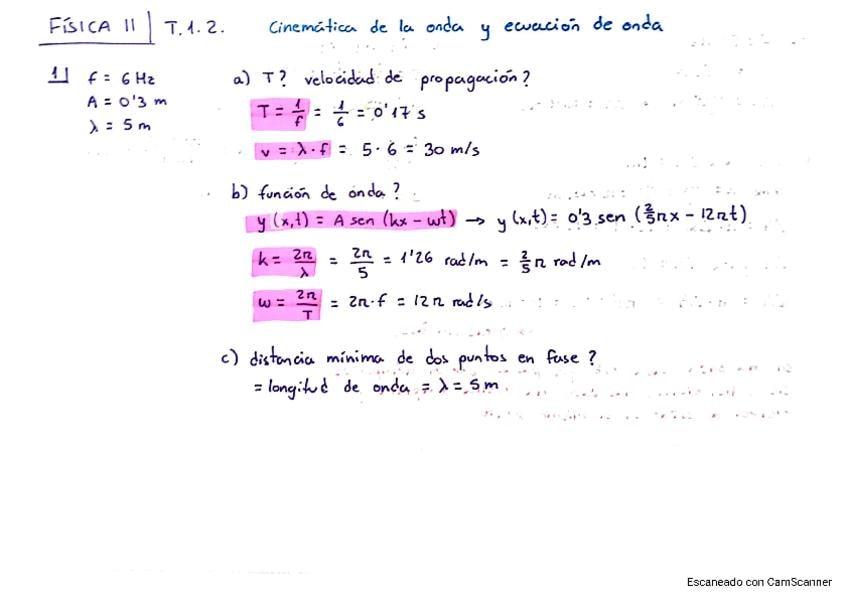 FÍSICA II | T.1.2. Cinemática de la onda y ecuación de onda
1] f = 6 Hz
A = 0'3 m
λ = 5 m
a) T? velocidad de propagación?
T = 1/f = 1/6 = 0'17 s
v = λ · f = 5 · 6 = 30 m/s
b) función de onda?
y (x,t) = A sen (kx - ωt) → y (x,t) = 0'3 sen (2/5 πx - 12πt)
k = 2π/λ = 2π/5 = 1'26 rad/m = 2/5 π rad/m
ω = 2π/T = 2π·f = 12π rad/s
c) distancia mínima de dos puntos en fase?
= longitud de onda = λ = 5 m
Escaneado con CamScanner